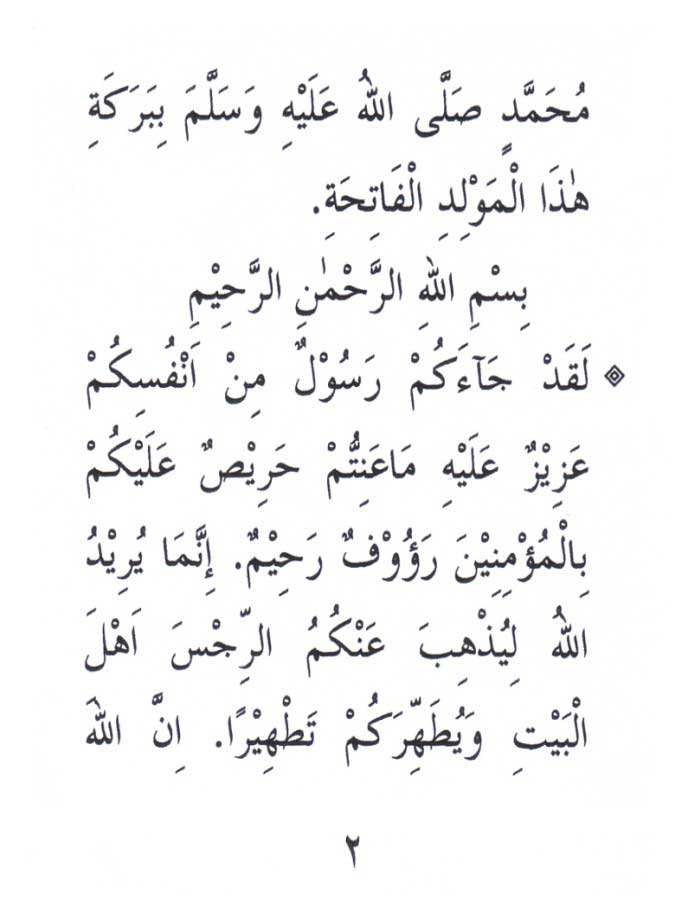 مُحَمَّدٍ صَلَّى اللهُ عَلَيْهِ وَسَلَّمَ بِبَرَكَةِ
هٰذَا الْمَوْلِدِ الْفَاتِحَةِ.
بِسْمِ اللهِ الرَّحْمٰنِ الرَّحِيْمِ
لَقَدْ جَآءَكُمْ رَسُوْلٌ مِنْ اَنْفُسِكُمْ
عَزِيْزٌ عَلَيْهِ مَاعَنِتُّمْ حَرِيْصٌ عَلَيْكُمْ
بِالْمُؤْمِنِيْنَ رَؤُوْفٌ رَحِيْمٌ. اِنَّمَا يُرِيْدُ
اللهُ لِيُذْهِبَ عَنْكُمُ الرِّجْسَ اَهْلَ
الْبَيْتِ وَيُطَهِّرَكُمْ تَطْهِيْرًا. اِنَّ اللهَ
٢